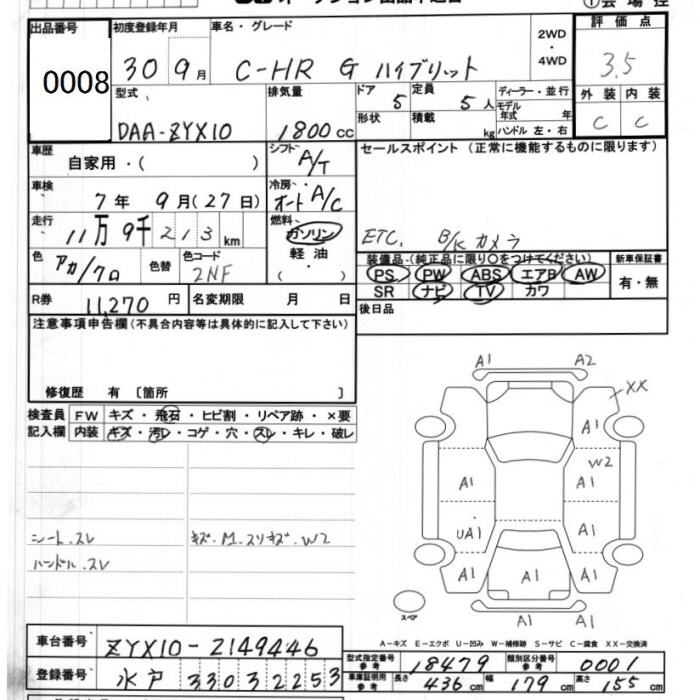 ①会場控
出品番号 初度登録年月 車名・グレード 2WD ・ 4WD 評価点
0008 30 9月 C-HR G ハイブリット 3.5
型式 排気量 ドア 5 定員 5人 ディーラー・並行 外装 内装
DAA-ZYX10 1800cc 形状 積載 kg モデル年式 年 C C
ハンドル 左・右
車歴 自家用・( ) シフト A/T セールスポイント(正常に機能するものに限ります)
車検 7年 9月(27日) 冷房 オート A/C
走行 11万9千213km 燃料 ガソリン ETC. B/K カメラ
軽油
( )
色 アカ/クロ 色替 色コード 2NF 装備品-(純正品に限り○をつけてください) 新車保証書
PS PW ABS エアB AW 有・無
SR ナビ TV カワ
R券 11,270円 名変期限 月 日 後日品
注意事項申告欄(不具合内容等は具体的に記入して下さい)
修復歴 有〔箇所 〕
検査員 FW キズ・飛石・ヒビ割・リペア跡・×要
記入欄 内装 キズ・汚レ・コゲ・穴・スレ・キレ・破レ
シート.スレ キズ.M.スリキズ.W2
ハンドル.スレ
A1 A2
XX
A1
W2
A1 A1
UA1 A1
A1 A1 A1
スペア A1 A1
A-キズ E-エクボ U-凹み W-補修跡 S-サビ C-腐食 XX-交換済
車台番号 ZYX10-2149446
型式指定番号 参考 18479 類別区分番号 参考 0001
登録番号 水戸 330 3 2253
車庫証明用 参考 長さ 436cm 幅 179cm 高さ 155cm